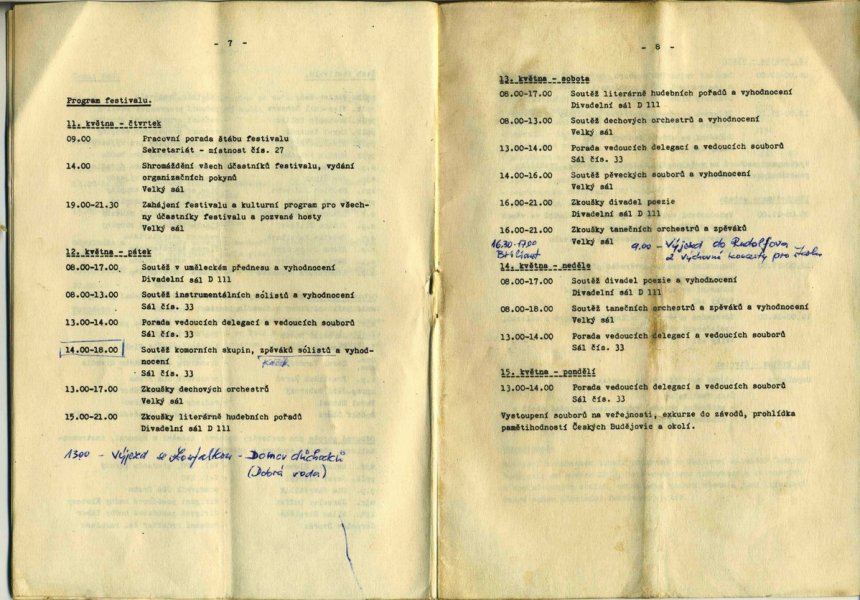 - 7 -
Program festivalu.
11. května - čtvrtek
09.00 Pracovní porada štábu festivalu
Sekretariát - místnost čís. 27
14.00 Shromáždění všech účastníků festivalu, vydání
organizačních pokynů
Velký sál
19.00-21.30 Zahájení festivalu a kulturní program pro všech-
ny účastníky festivalu a pozvané hosty
Velký sál
12. května - pátek
08.00-17.00. Soutěž v uměleckém přednesu a vyhodnocení
Divadelní sál D 111
08.00-13.00 Soutěž instrumentálních sólistů a vyhodnocení
Sál čís. 33
13.00-14.00 Porada vedoucích delegací a vedoucích souborů
Sál čís. 33
14.00-18.00 Soutěž komorních skupin, zpěváků sólistů a vyhod-
nocení
Sál čís. 33
13.00-17.00 Zkoušky dechových orchestrů
Velký sál
15.00-21.00 Zkoušky literárně hudebních pořadů
Divadelní sál D 111
1300 - Výjezd se - Domov důchodců
(Dobrá voda)
- 8 -
13. května - sobota
08.00-17.00 Soutěž literárně hudebních pořadů a vyhodnocení
Divadelní sál D 111
08.00-13.00 Soutěž dechových orchestrů a vyhodnocení
Velký sál
13.00-14.00 Porada vedoucích delegací a vedoucích souborů
Sál čís. 33
14.00-16.00 Soutěž pěveckých souborů a vyhodnocení
Velký sál
16.00-21.00 Zkoušky divadel poezie
Divadelní sál D 111
16.00-21.00 Zkoušky tanečních orchestrů a zpěváků
Velký sál
16.30-17.00
Briliant
9.00 - Výjezd do Rudolfova
a výchovné koncerty pro
14. května - neděle
08.00-17.00 Soutěž divadel poezie a vyhodnocení
Divadelní sál D 111
08.00-18.00 Soutěž tanečních orchestrů a zpěváků a vyhodnocení
Velký sál
13.00-14.00 Porada vedoucích delegací a vedoucích souborů
Sál čís. 33
15. května - pondělí
13.00-14.00 Porada vedoucích delegací a vedoucích souborů
Sál čís. 33
Vystoupení souborů na veřejnosti, exkurze do závodů, prohlídka
pamětihodností Českých Budějovic a okolí.